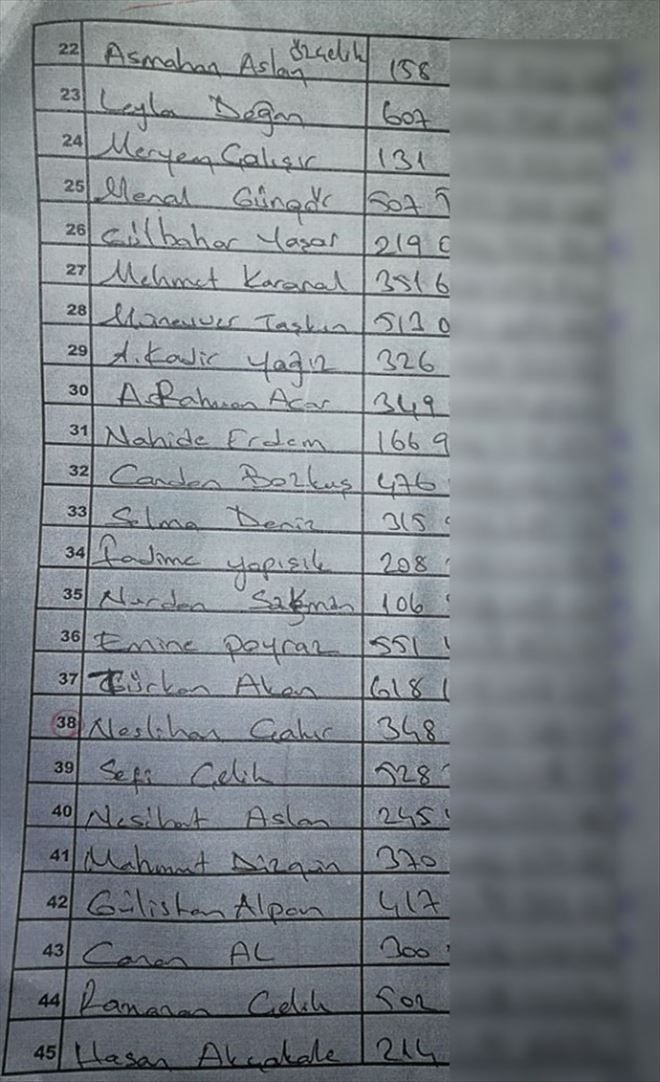 22 Asmahan Aslan Özçelik 158
23 Leyla Doğan 607
24 Meryem Çalışır 131
25 Meral Güngör 507
26 Gülbahar Yaşar 219 0
27 Mehmet Karanal 351 6
28 Münevver Taşkın 513 0
29 A.Kadir Yağız 326
30 A.Rahman Acar 349
31 Nahide Erdem 166 9
32 Candan Bozkuş 476
33 Selma Deniz 315
34 Fadime Yapışık 208
35 Nurdan 106
36 Emine Poyraz 551
37 Türkan Akan 618 1
38 Neslihan 348
39 Sefi Çelik 528
40 Nesibat Aslan 245
41 Mahmut Dizgin 370
42 Gülistan Alpan 417
43 Caner AL 300
44 Ramazan Çelik 502
45 Hasan Akçakale 214